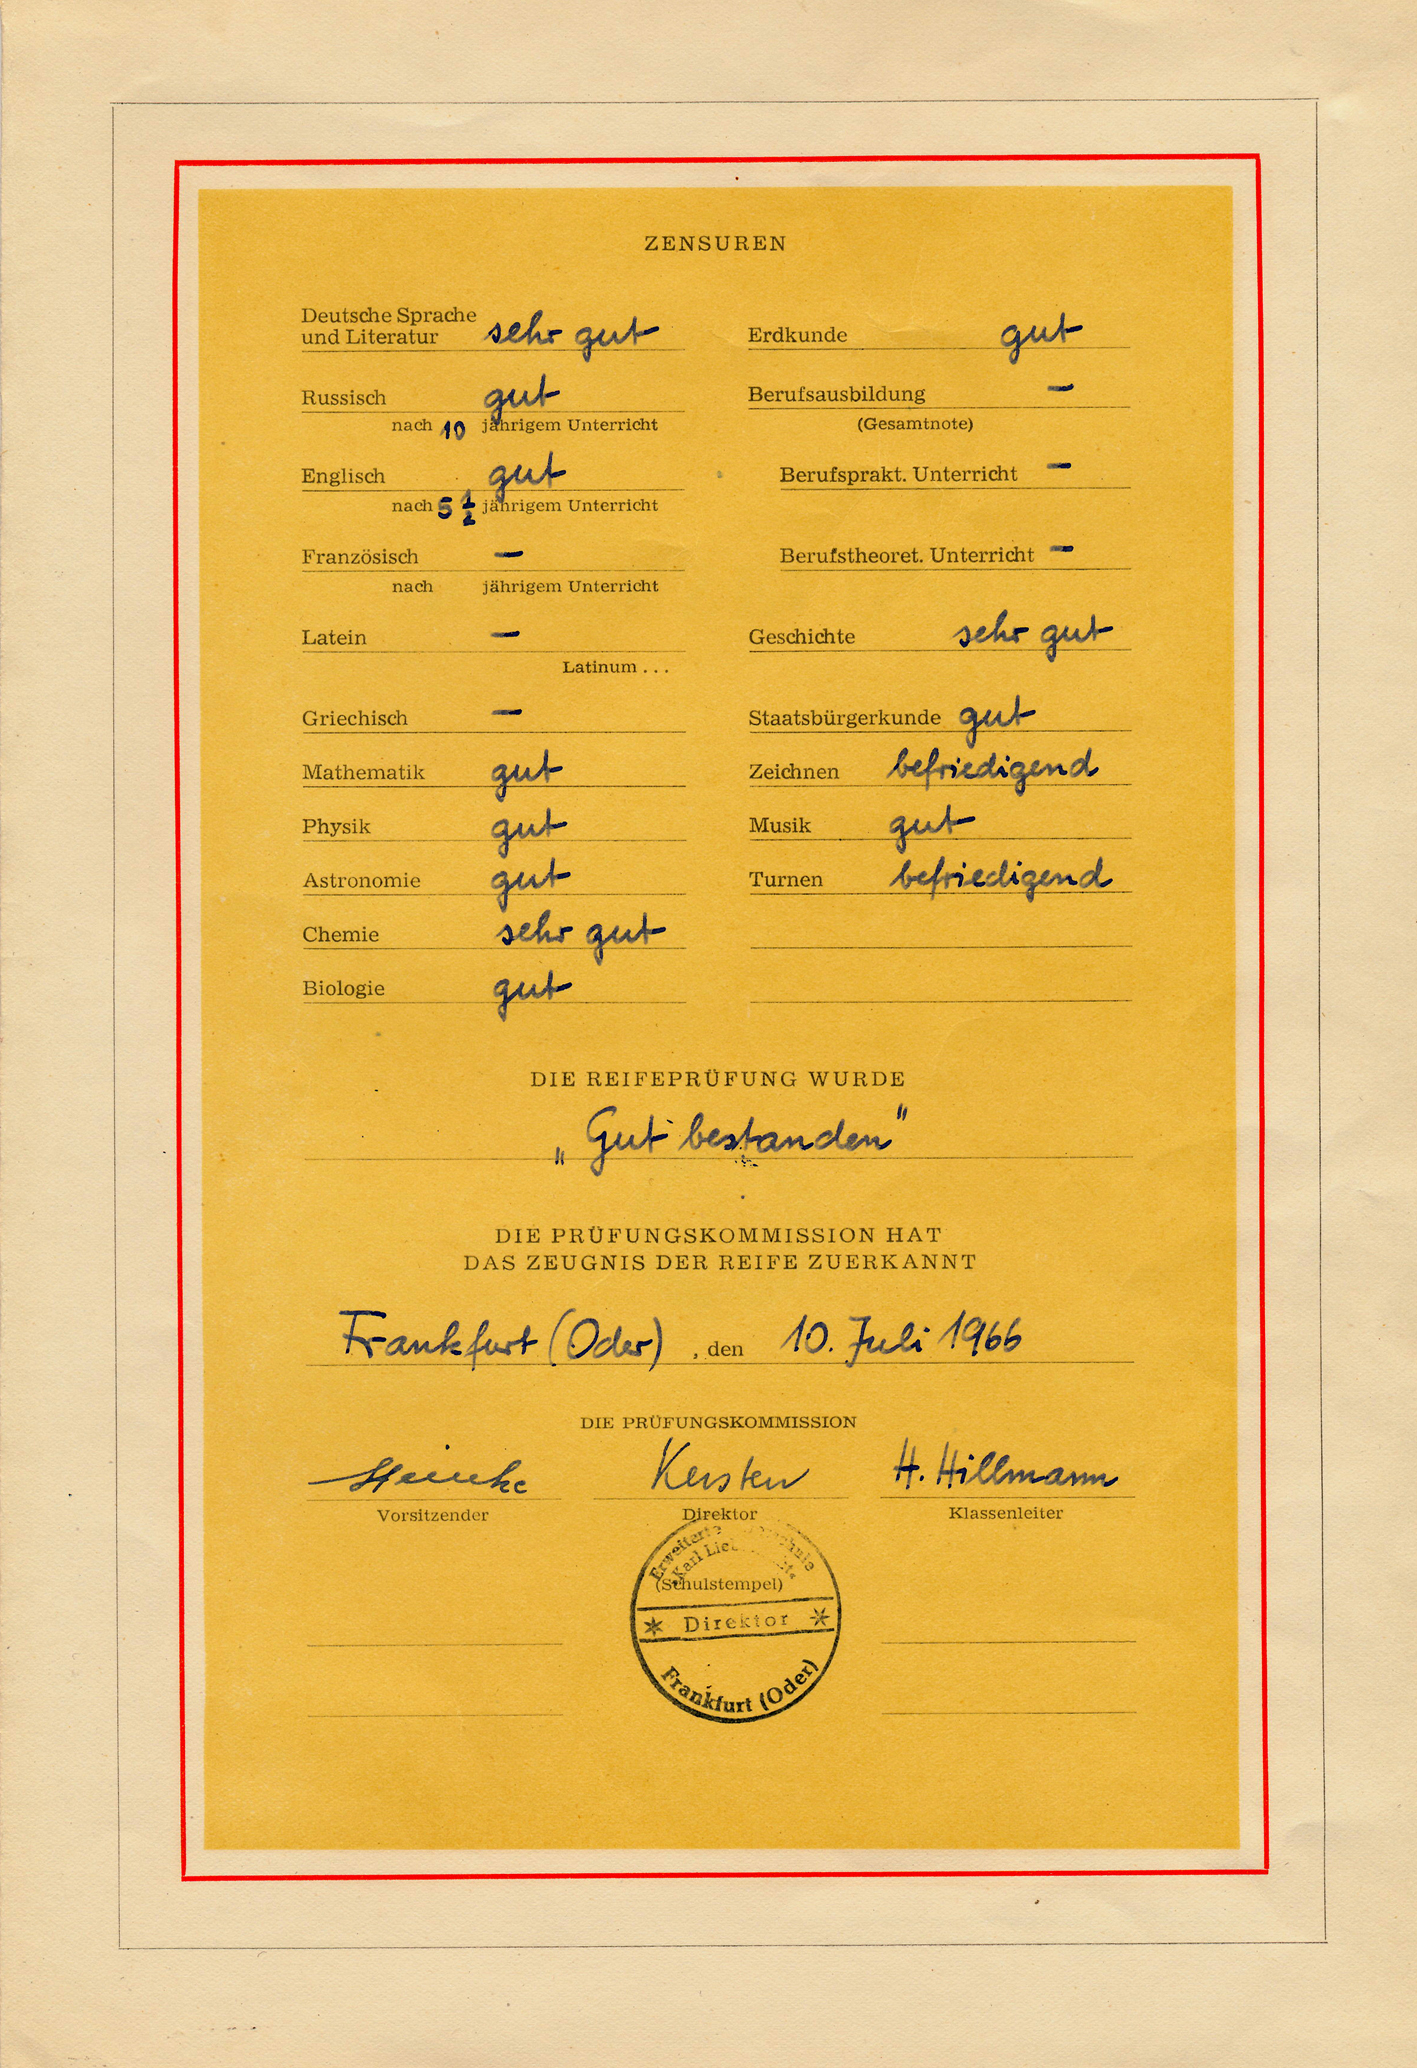 ZENSUREN
Deutsche Sprache
und Literatur sehr gut
Russisch gut
nach 10 jährigem Unterricht
Englisch gut
nach 5 1/2 jährigem Unterricht
Französisch —
nach jährigem Unterricht
Latein —
Latinum . . .
Griechisch —
Mathematik gut
Physik gut
Astronomie gut
Chemie sehr gut
Biologie gut
Erdkunde gut
Berufsausbildung —
(Gesamtnote)
Berufsprakt. Unterricht —
Berufstheoret. Unterricht —
Geschichte sehr gut
Staatsbürgerkunde gut
Zeichnen befriedigend
Musik gut
Turnen befriedigend
DIE REIFEPRÜFUNG WURDE
„Gut bestanden"
DIE PRÜFUNGSKOMMISSION HAT
DAS ZEUGNIS DER REIFE ZUERKANNT
Frankfurt (Oder), den 10. Juli 1966
DIE PRÜFUNGSKOMMISSION
Kersten H. Hillmann
Vorsitzender Direktor Klassenleiter
Erweiterte
Karl
(Schulstempel)
* Direktor *
Frankfurt (Oder)